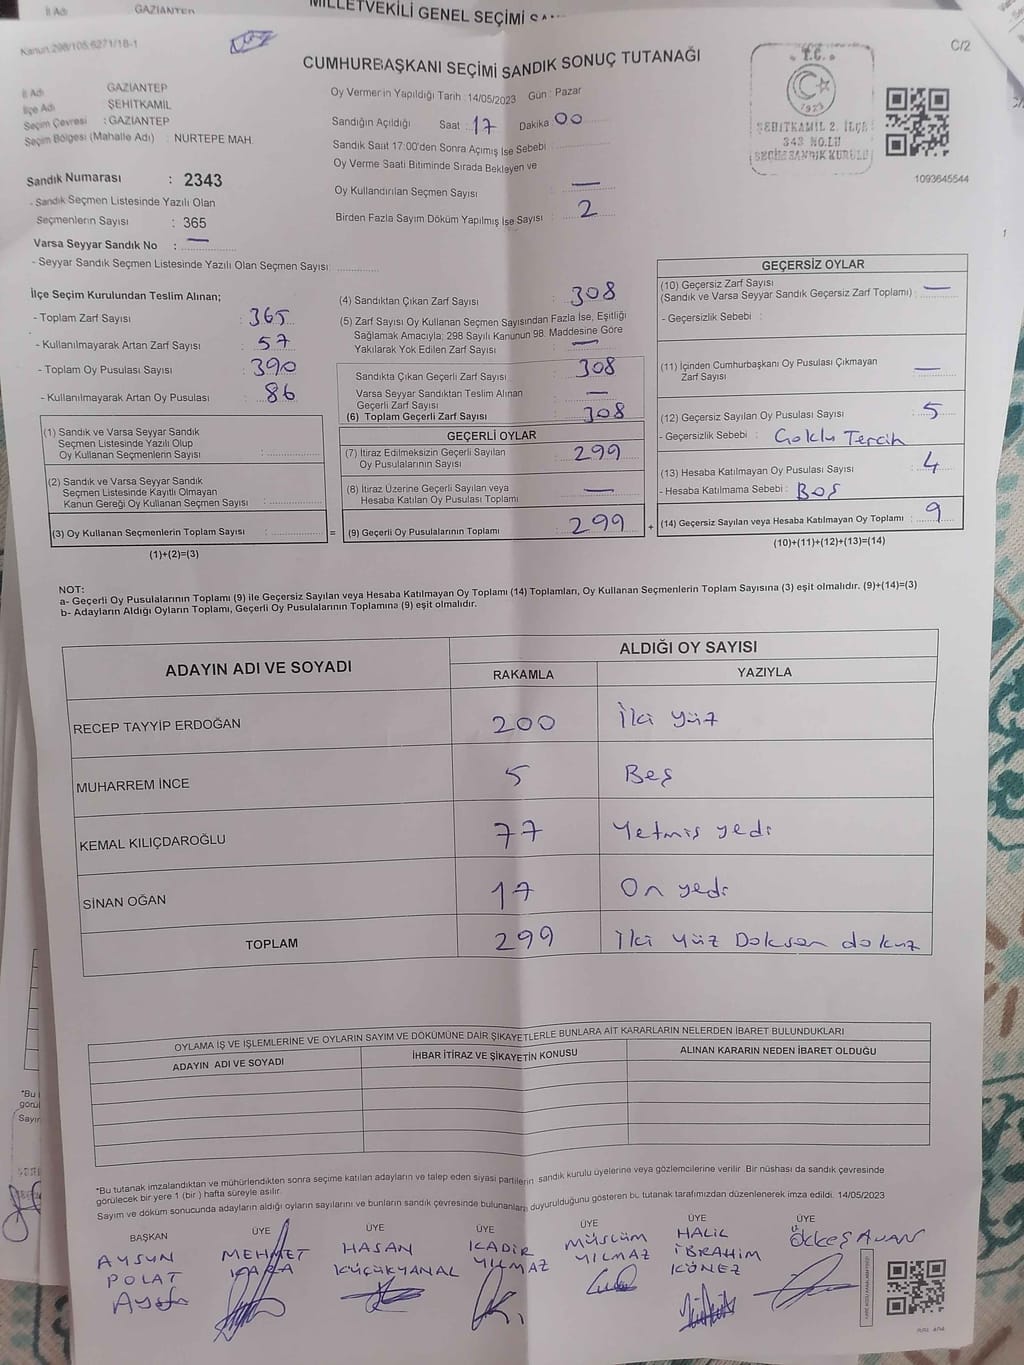 İl Adı GAZİANTEP
MİLLETVEKİLİ GENEL SEÇİMİ
Kanun:298/105,6271/18-1
C/2
CUMHURBAŞKANI SEÇİMİ SANDIK SONUÇ TUTANAĞI
İl Adı GAZİANTEP
İlçe Adı ŞEHİTKAMİL
Seçim Çevresi : GAZİANTEP
Seçim Bölgesi (Mahalle Adı) : NURTEPE MAH.
Oy Vermenin Yapıldığı Tarih : 14/05/2023 Gün : Pazar
Sandığın Açıldığı Saat : 17 Dakika 00
Sandık Saat 17:00'den Sonra Açımış İse Sebebi
Oy Verme Saati Bitiminde Sırada Bekleyen ve
Oy Kullandırılan Seçmen Sayısı —
Birden Fazla Sayım Döküm Yapılmış İse Sayısı : 2
T.C.
1923
ŞEHİTKAMİL 2. İLÇE
343 NO.LU
SEÇİM SANDIK KURULU
1093645544
Sandık Numarası : 2343
- Sandık Seçmen Listesinde Yazılı Olan
Seçmenlerin Sayısı : 365
Varsa Seyyar Sandık No : —
- Seyyar Sandık Seçmen Listesinde Yazılı Olan Seçmen Sayısı:
İlçe Seçim Kurulundan Teslim Alınan;
- Toplam Zarf Sayısı : 365
- Kullanılmayarak Artan Zarf Sayısı : 57
- Toplam Oy Pusulası Sayısı : 390
- Kullanılmayarak Artan Oy Pusulası : 86
(1) Sandık ve Varsa Seyyar Sandık
Seçmen Listesinde Yazılı Olup
Oy Kullanan Seçmenlerin Sayısı :
(2) Sandık ve Varsa Seyyar Sandık
Seçmen Listesinde Kayıtlı Olmayan
Kanun Gereği Oy Kullanan Seçmen Sayısı :
(3) Oy Kullanan Seçmenlerin Toplam Sayısı : =
(1)+(2)=(3)
(4) Sandıktan Çıkan Zarf Sayısı : 308
(5) Zarf Sayısı Oy Kullanan Seçmen Sayısından Fazla İse, Eşitliği
Sağlamak Amacıyla; 298 Sayılı Kanunun 98. Maddesine Göre
Yakılarak Yok Edilen Zarf Sayısı : —
Sandıkta Çıkan Geçerli Zarf Sayısı : 308
Varsa Seyyar Sandıktan Teslim Alınan
Geçerli Zarf Sayısı —
(6) Toplam Geçerli Zarf Sayısı : 308
GEÇERLİ OYLAR
(7) İtiraz Edilmeksizin Geçerli Sayılan
Oy Pusulalarının Sayısı : 299
(8) İtiraz Üzerine Geçerli Sayılan veya
Hesaba Katılan Oy Pusulası Toplamı : —
(9) Geçerli Oy Pusulalarının Toplamı : 299 +
GEÇERSİZ OYLAR
(10) Geçersiz Zarf Sayısı
(Sandık ve Varsa Seyyar Sandık Geçersiz Zarf Toplamı) : —
- Geçersizlik Sebebi :
(11) İçinden Cumhurbaşkanı Oy Pusulası Çıkmayan
Zarf Sayısı : —
(12) Geçersiz Sayılan Oy Pusulası Sayısı : 5
- Geçersizlik Sebebi : Çoklu Tercih
(13) Hesaba Katılmayan Oy Pusulası Sayısı : 4
- Hesaba Katılmama Sebebi : Boş
(14) Geçersiz Sayılan veya Hesaba Katılmayan Oy Toplamı : 9
(10)+(11)+(12)+(13)=(14)
NOT:
a- Geçerli Oy Pusulalarının Toplamı (9) ile Geçersiz Sayılan veya Hesaba Katılmayan Oy Toplamı (14) Toplamları, Oy Kullanan Seçmenlerin Toplam Sayısına (3) eşit olmalıdır. (9)+(14)=(3)
b- Adayların Aldığı Oyların Toplamı, Geçerli Oy Pusulalarının Toplamına (9) eşit olmalıdır.
ADAYIN ADI VE SOYADI ALDIĞI OY SAYISI
RAKAMLA YAZIYLA
RECEP TAYYİP ERDOĞAN 200 İki yüz
MUHARREM İNCE 5 Beş
KEMAL KILIÇDAROĞLU 77 Yetmiş yedi
SİNAN OĞAN 17 On yedi
TOPLAM 299 İki yüz Doksan dokuz
OYLAMA İŞ VE İŞLEMLERİNE VE OYLARIN SAYIM VE DÖKÜMÜNE DAİR ŞİKAYETLERLE BUNLARA AİT KARARLARIN NELERDEN İBARET BULUNDUKLARI
ADAYIN ADI VE SOYADI İHBAR İTİRAZ VE ŞİKAYETİN KONUSU ALINAN KARARIN NEDEN İBARET OLDUĞU
*Bu tutanak imzalandıktan ve mühürlendikten sonra seçime katılan adayların ve talep eden siyasi partilerin sandık kurulu üyelerine veya gözlemcilerine verilir. Bir nüshası da sandık çevresinde
görülecek bir yere 1 (bir) hafta süreyle asılır.
Sayım ve döküm sonucunda adayların aldığı oyların sayılarını ve bunların sandık çevresinde bulunanlara duyurulduğunu gösteren bu tutanak tarafımızdan düzenlenerek imza edildi. 14/05/2023
BAŞKAN ÜYE ÜYE ÜYE ÜYE ÜYE ÜYE
AYSUN POLAT
MEHMET KARA
HASAN KÜÇÜKYANAL
KADİR YILMAZ
MÜSLÜM YILMAZ
HALİL İBRAHİM KÖNEZ
ÖKKEŞ AVAN